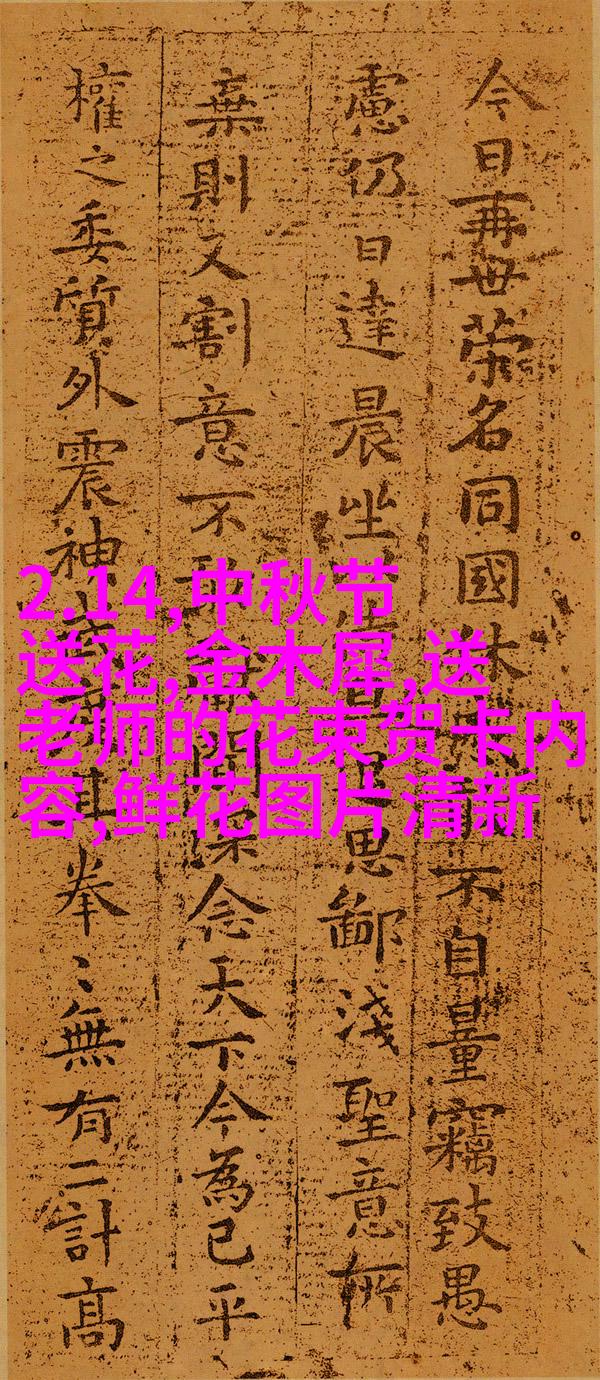 今日再世榮名同國休不自量竊致愚
慮仍日達晨坐思鄙淺聖意所
棄則又割意不敢聞深念天下今為已平
權之委質外震神武度其拳〻無有二計高
2.14,中秋节
送花,金木犀,送
老师的花束贺卡内
容,鲜花图片清新